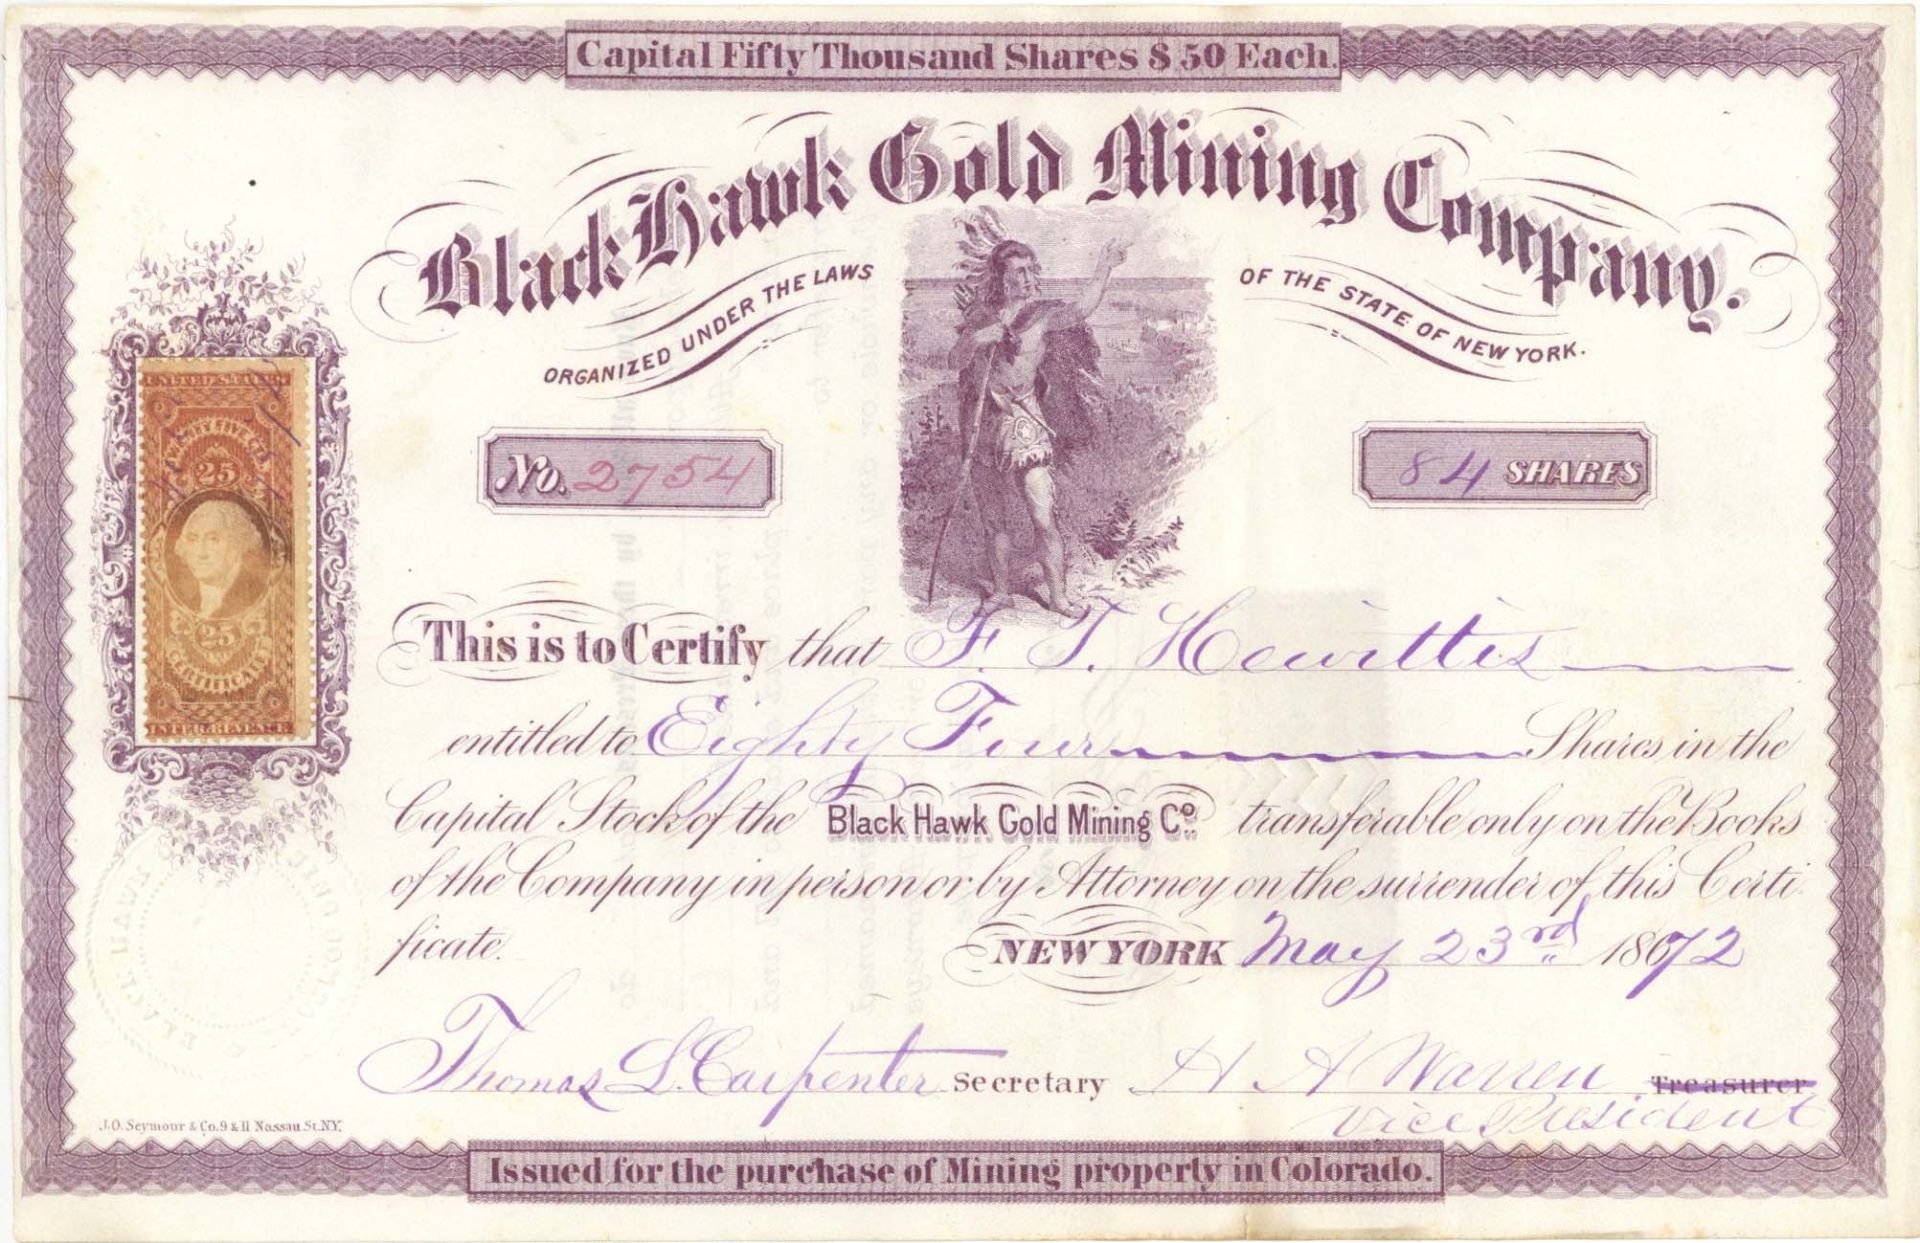 Capital Fifty Thousand Shares $50 Each.
Black Hawk Gold Mining Company.
ORGANIZED UNDER THE LAWS OF THE STATE OF NEW YORK.
UNITED STATES
TWENTY FIVE CTS
25
25
CERTIFICATE
INTER. REVENUE
No. 2754
84 SHARES
This is to Certify that F. T. Hewittes
entitled to Eighty Four Shares in the
Capital Stock of the Black Hawk Gold Mining Co. transferable only on the Books
of the Company in person or by Attorney on the surrender of this Certi-
ficate. NEW YORK May 23rd 1872
Thomas L. Carpenter Secretary H A Warren Treasurer
Vice President
J.O. Seymour & Co. 9 & 11 Nassau St. N.Y.
Issued for the purchase of Mining property in Colorado.